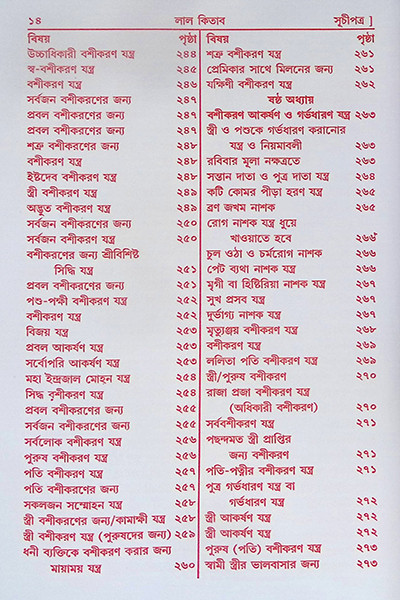 ১৪ লাল কিতাব সূচীপত্র ]
বিষয় পৃষ্ঠা
উচ্চাধিকারী বশীকরণ যন্ত্র ২৪৪
স্ব-বশীকরণ যন্ত্র ২৪৫
বশীকরণ যন্ত্র ২৪৬
সর্বজন বশীকরণের জন্য ২৪৭
প্রবল বশীকরণের জন্য ২৪৭
প্রবল বশীকরণের জন্য ২৪৭
শত্রু বশীকরণের জন্য ২৪৮
বশীকরণ যন্ত্র ২৪৮
ইষ্টদেব বশীকরণ যন্ত্র ২৪৮
স্ত্রী বশীকরণ যন্ত্র ২৪৯
অদ্ভুত বশীকরণ যন্ত্র ২৪৯
সর্বজন বশীকরণের জন্য ২৫০
সর্বজন বশীকরণ যন্ত্র ২৫০
বশীকরণের জন্য শ্রীবিশিষ্ট
সিদ্ধি যন্ত্র ২৫১
প্রবল বশীকরণের জন্য ২৫১
পশু-পক্ষী বশীকরণ যন্ত্র ২৫২
বশীকরণ যন্ত্র ২৫২
বিজয় যন্ত্র ২৫৩
প্রবল আকর্ষণ যন্ত্র ২৫৩
সর্বোপরি আকর্ষণ যন্ত্র ২৫৩
মহা ইন্দ্রজাল মোহন যন্ত্র ২৫৪
সিদ্ধ বৃশীকরণ যন্ত্র ২৫৪
প্রবল বশীকরণের জন্য ২৫৫
সর্বজন বশীকরণের জন্য ২৫৫
সর্বলোক বশীকরণ যন্ত্র ২৫৬
পুরুষ বশীকরণ যন্ত্র ২৫৬
পতি বশীকরণ যন্ত্র ২৫৭
পতি বশীকরণের জন্য ২৫৭
সকলজন সম্মোহন যন্ত্র ২৫৮
স্ত্রী বশীকরণের জন্য/কামাক্ষী যন্ত্র ২৫৮
স্ত্রী বশীকরণ যন্ত্র (পুরুষদের জন্য) ২৫৯
ধনী ব্যক্তিকে বশীকরণ করার জন্য
মায়াময় যন্ত্র ২৬০
বিষয় পৃষ্ঠা
শত্রু বশীকরণ যন্ত্র ২৬১
প্রেমিকার সাথে মিলনের জন্য ২৬১
যক্ষিণী বশীকরণ যন্ত্র ২৬২
ষষ্ঠ অধ্যায়
বশীকরণ আকর্ষণ ও গর্ভধারণ যন্ত্র ২৬৩
স্ত্রী ও পশুকে গর্ভধারণ করানোর
যন্ত্র ও নিয়মাবলী ২৬৩
রবিবার মূলা নক্ষত্রতে ২৬৩
সন্তান দাতা ও পুত্র দাতা যন্ত্র ২৬৪
কটি কোমর পীড়া হরণ যন্ত্র ২৬৫
ব্রণ জখম নাশক ২৬৫
রোগ নাশক যন্ত্র ধুয়ে
খাওয়াতে হবে ২৬৬
চুল ওঠা ও চর্মরোগ নাশক ২৬৬
পেট ব্যথা নাশক যন্ত্র ২৬৬
মৃগী বা হিষ্টিরিয়া নাশক যন্ত্র ২৬৭
সুখ প্রসব যন্ত্র ২৬৭
দুর্ভাগ্য নাশক যন্ত্র ২৬৭
মৃত্যুঞ্জয় বশীকরণ যন্ত্র ২৬৮
বশীকরণ যন্ত্র ২৬৯
ললিতা পতি বশীকরণ যন্ত্র ২৬৯
স্ত্রী/পুরুষ বশীকরণ ২৭০
রাজা প্রজা বশীকরণ যন্ত্র
(অধিকারী বশীকরণ) ২৭০
সর্ববশীকরণ যন্ত্র ২৭১
পছন্দমত স্ত্রী প্রাপ্তির
জন্য বশীকরণ ২৭১
পতি-পত্নীর বশীকরণ যন্ত্র ২৭১
পুত্র গর্ভধারণ যন্ত্র বা
গর্ভধারণ যন্ত্র ২৭২
স্ত্রী আকর্ষণ যন্ত্র ২৭২
স্ত্রী আকর্ষণ যন্ত্র ২৭২
পুরুষ (পতি) বশীকরণ যন্ত্র ২৭৩
স্বামী স্ত্রীর ভালবাসার জন্য ২৭৩